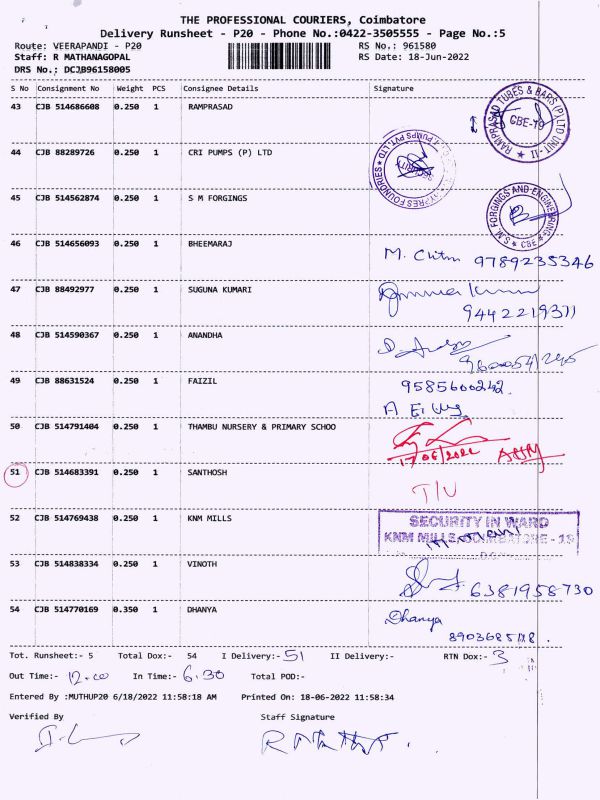 THE PROFESSIONAL COURIERS, Coimbatore
Delivery Runsheet - P20 - Phone No.:0422-3505555 - Page No.:5
Route: VEERAPANDI - P20 RS No.: 961580
Staff: R MATHANAGOPAL RS Date: 18-Jun-2022
DRS No.: DCJB96158005
S No Consignment No Weight PCS Consignee Details Signature
43 CJB 514686608 0.250 1 RAMPRASAD RAMPRASAD TUBES & BARS (P) LTD UNIT - II CBE-19
44 CJB 88289726 0.250 1 CRI PUMPS (P) LTD
45 CJB 514562874 0.250 1 S M FORGINGS S.M. FORGINGS AND ENGINEERING CBE
46 CJB 514656093 0.250 1 BHEEMARAJ 9789235346
47 CJB 88492977 0.250 1 SUGUNA KUMARI
9442219311
48 CJB 514590367 0.250 1 ANANDHA
49 CJB 88631524 0.250 1 FAIZIL 9585600242
50 CJB 514791404 0.250 1 THAMBU NURSERY & PRIMARY SCHOO
17/06/2022
51 CJB 514683391 0.250 1 SANTHOSH
T/U
52 CJB 514769438 0.250 1 KNM MILLS SECURITY IN WARD
KNM MILLS, COIMBATORE - 19
53 CJB 514838334 0.250 1 VINOTH 6381958730
54 CJB 514770169 0.350 1 DHANYA Dhanya
Tot. Runsheet:- 5 Total Dox:- 54 I Delivery:- 51 II Delivery:- RTN Dox:- 3
Out Time:- 12.00 In Time:- 6.30 Total POD:-
Entered By :MUTHUP20 6/18/2022 11:58:18 AM Printed On: 18-06-2022 11:58:34
Verified By Staff Signature